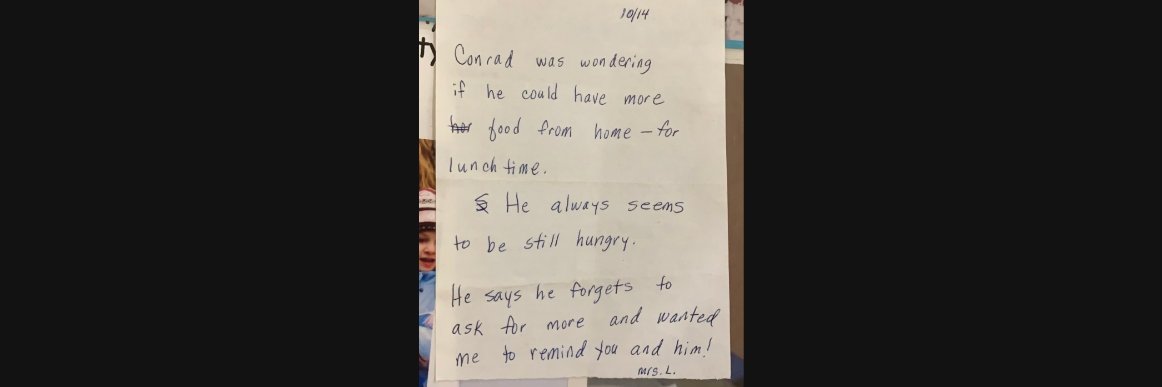 10/14
ty
Conrad was wondering
if he could have more
food from home – for
lunch time.
He always seems
to be still hungry.
He says he forgets to
ask for more and wanted
me to remind you and him!
Mrs. L.